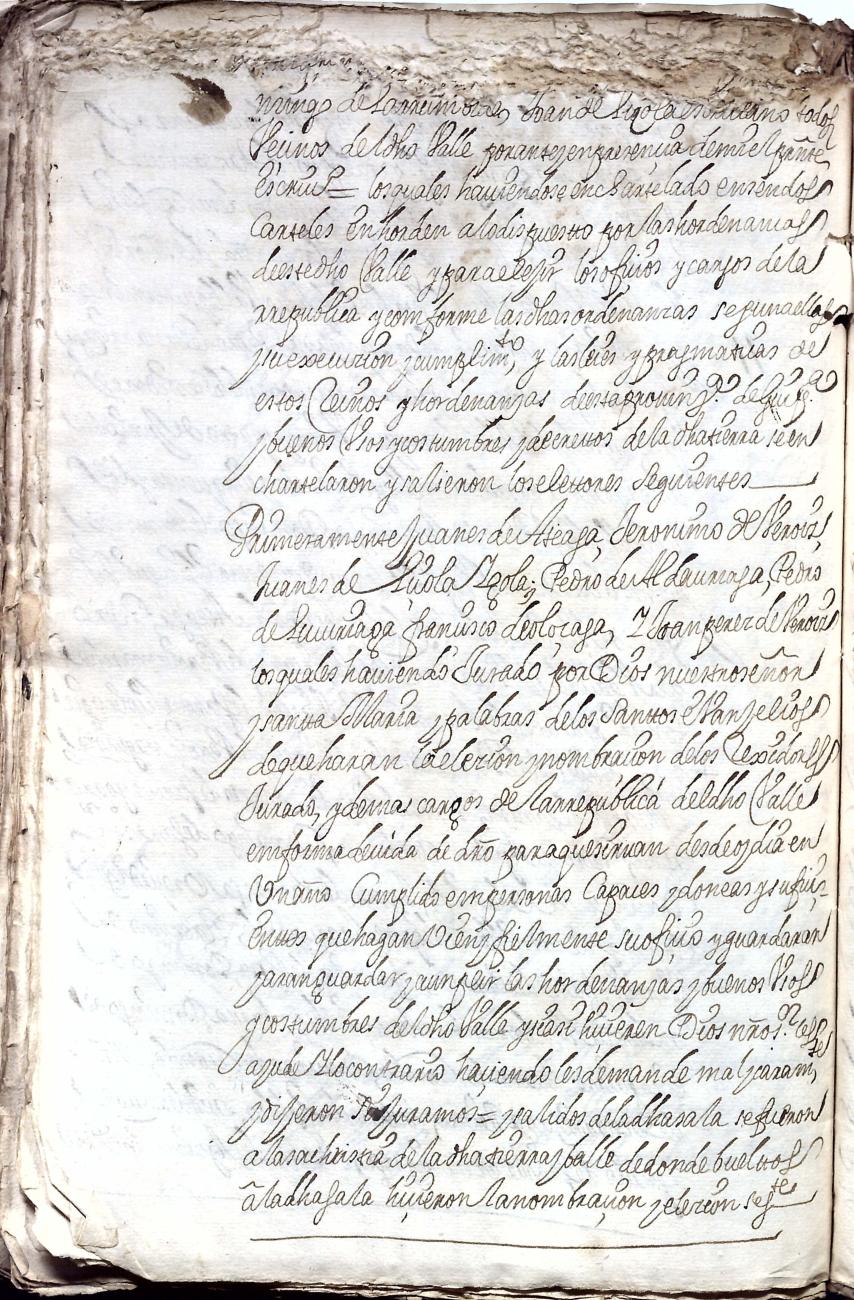 mingo de Larrimotez, Joan de Igola escrivano todos
Vecinos del dho Valle por antez en presencia de mi el press.te
escriu.o = los quales haviendose enchartelado en sendos
Carteles en horden a lo dispuestto por las hordenanzas
de estedho Valle y para elejir los ofiçios y cargos de la
rrepublica y comforme las dhas ordenanzas segun a ellas
su execuzion y cumplim.to, y las leies y pragmaticas de
estos Reinos y hordenanzas de esta provinz.a de Guip.a
y buenos Vsos y costumbres y decrettos de la dha tierra se en
chartelaron y salieron los elettores Seguientes
Primeramente Juanes de Ateaga, Jeronimo de Veroiz,
Juanes de Igola, Pedro de Aldauriaga, Pedro
de Lucuriaga, francisco de olozaga, Y Joan perez de Veroiz
los quales haviendo Jurado por Dios nuestro señor
y santta Maria y palabras de los Santtos eVanjelios
de que haran la elezion y nombracion de los Rexidores
Jurado, y demas cargos de la rrepública del dho Valle
em forma devida de dr̃o para que sirvan desde oy dia en
Vn año Cumplido em personas Capaces ydoneas y sufiçi-
entes que hagan Vien y fielmente su ofiçio y guardaran
y aran guardar y cumplir las hordenanzas y buenos Vsos
y costumbres del dho Valle y si asi hiçieren Dios nr̃o s.r les
ayude Y lo contrario haçiendo les demande mal y caram.te
y dijeron Si Juramos = y salidos de la dha sala se fueron
a la sachristia de la dha tierra y balle de donde bueltos
â la dha sala hiçieron la nombracion y elezion seg.te